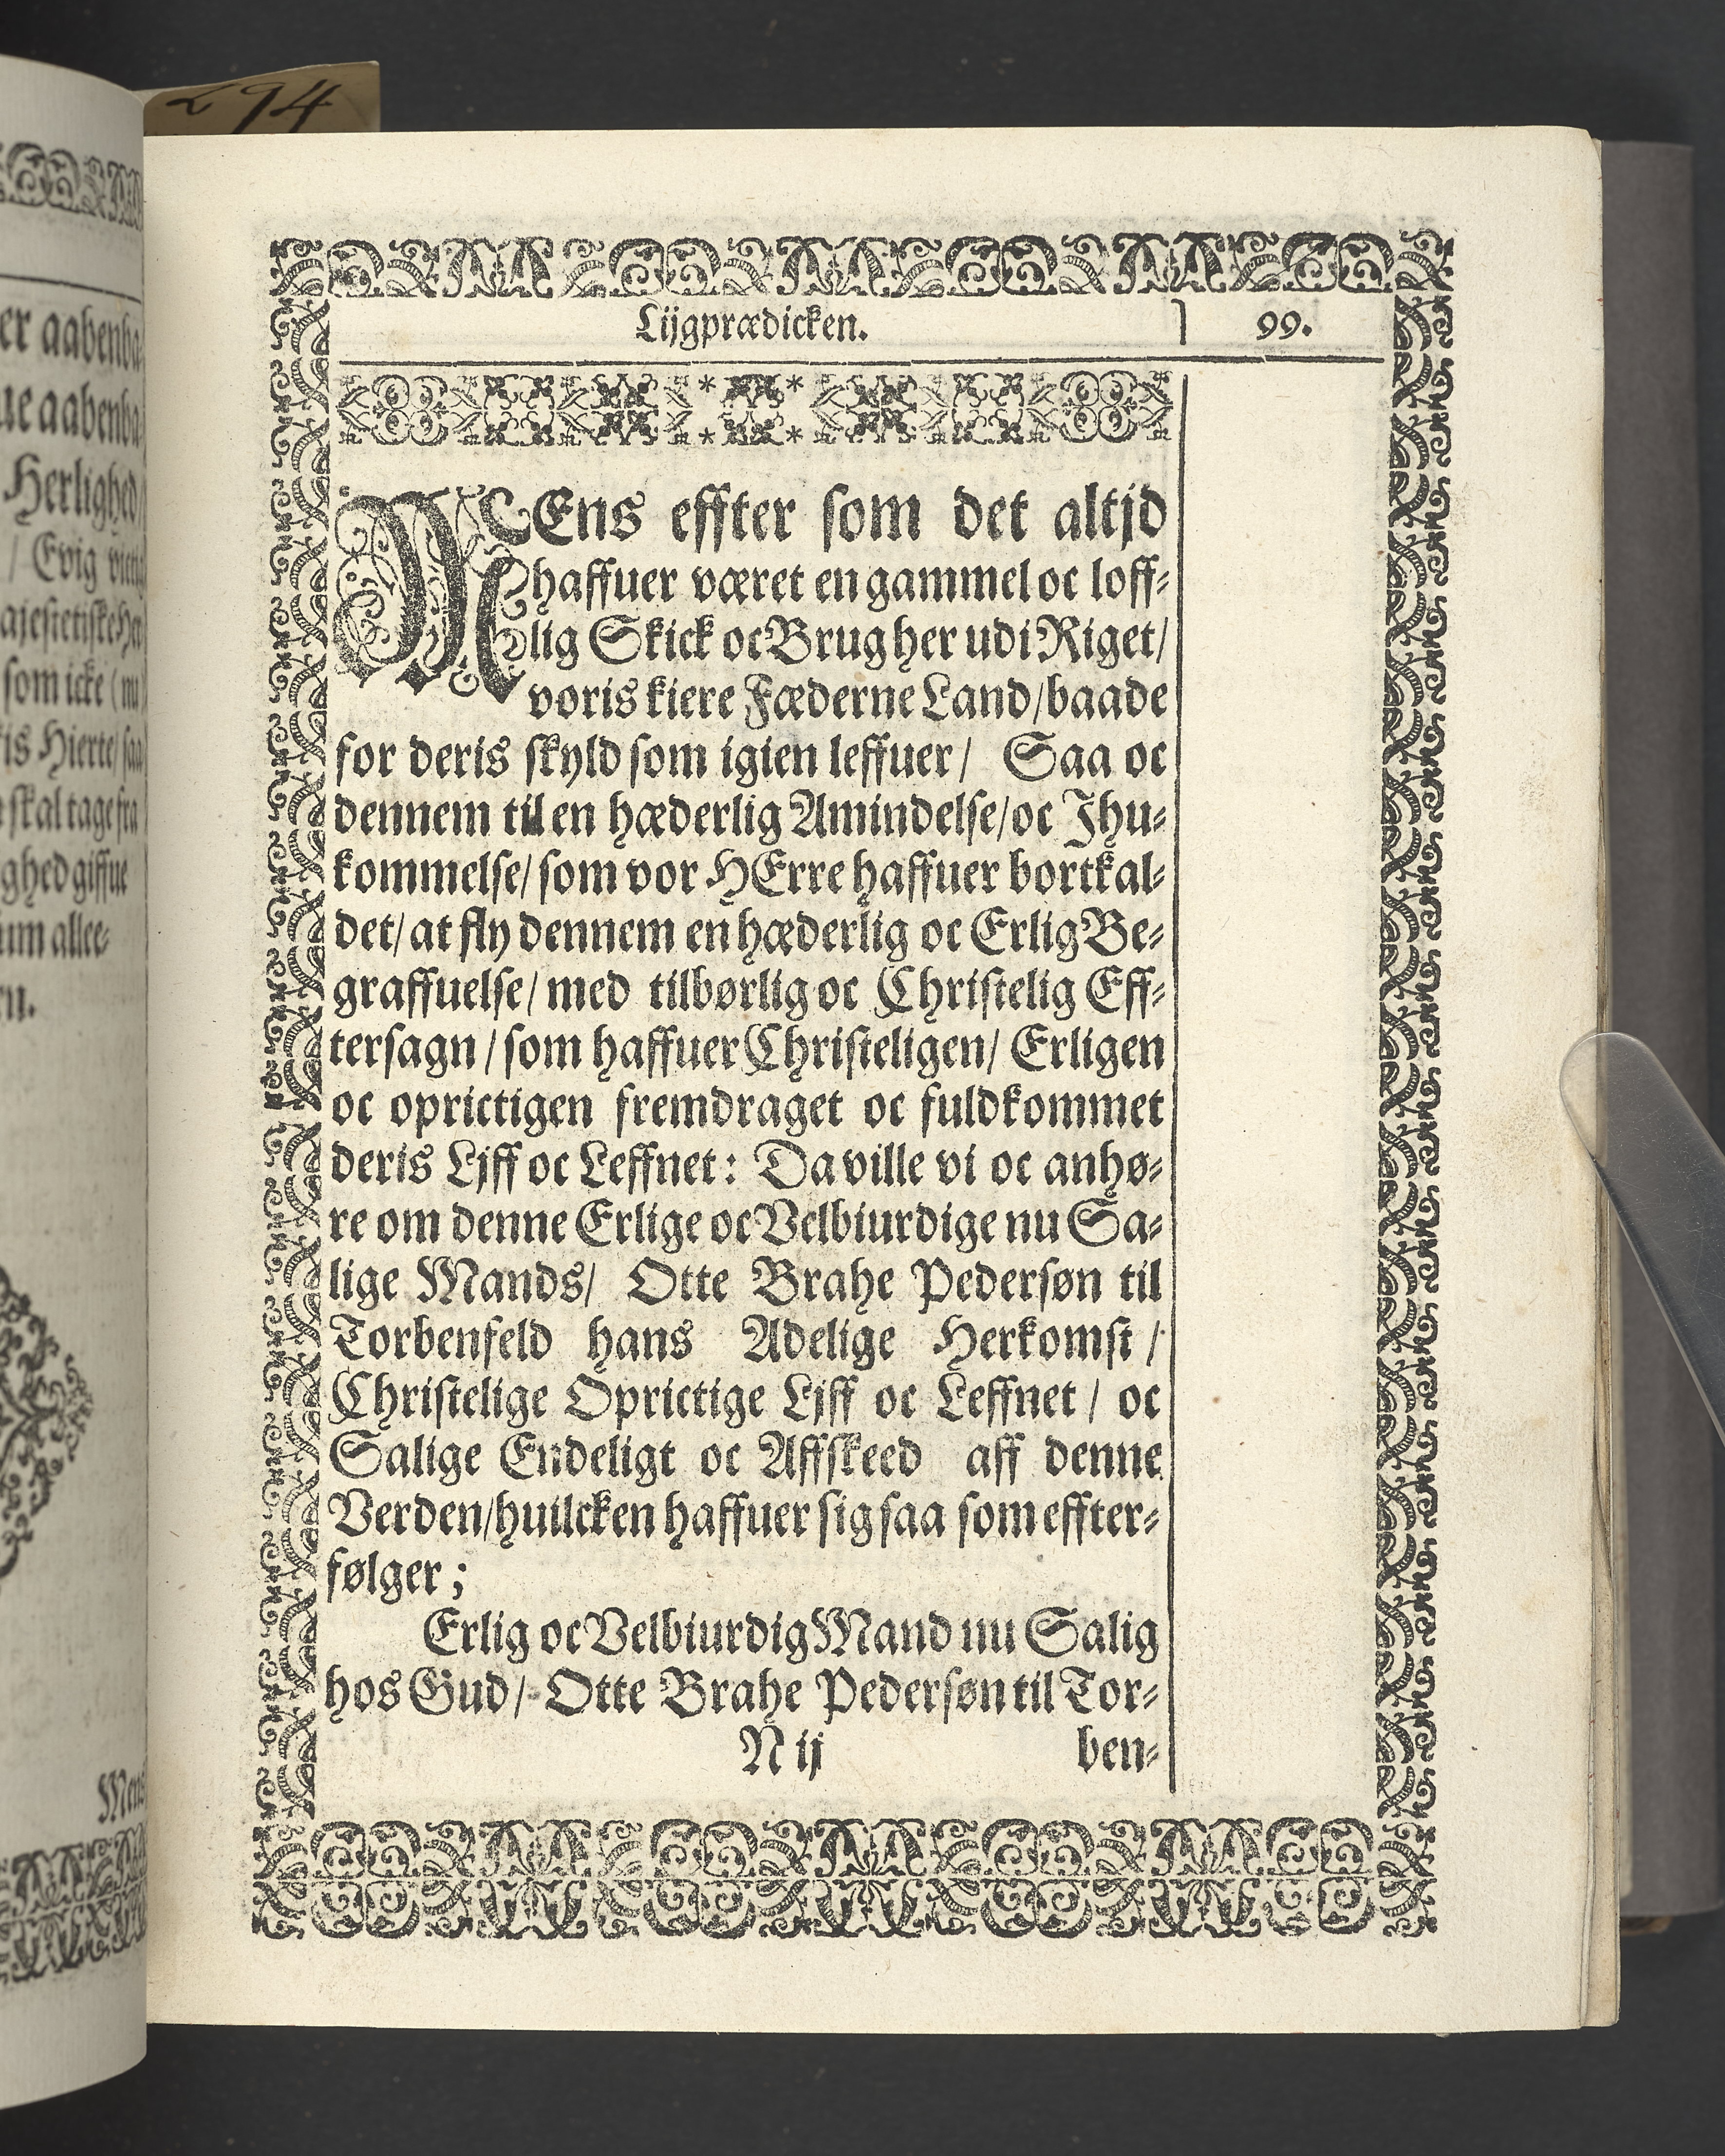 294
er aabenba
ue aabenba
Herlighed/
/ Evig
ajestetiske
som icke (nu)
is Hierte/ saa
skal tage fra
ghed giffue
um allee-
n.
Mens
Lijgprædicken. 99.
MEns effter som det altjd
haffuer været en gammel oc loff-
lig Skick oc Brug her udi Riget/
voris kiere Fæderne Land/ baade
for deris skyld som igien leffuer/ Saa oc
dennem til en hæderlig Amindelse/ oc Jhu-
kommelse/ som vor HErre haffuer bortkal-
det/ at fly dennem en hæderlig oc Erlig Be-
graffuelse/ med tilbørlig oc Christelig Eff-
tersagn / som haffuer Christeligen/ Erligen
oc oprictigen fremdraget oc fuldkommet
deris Ljff oc Leffnet: Da ville vi oc anhø-
re om denne Erlige oc Velbiurdige nu Sa-
lige Mands/ Otte Brahe Pedersøn til
Torbenfeld hans Adelige Herkomst /
Christelige Oprictige Ljff oc Leffnet / oc
Salige Endeligt oc Affskeed aff denne
Verden/ huilcken haffuer sig saa som effter-
følger ;
Erlig oc Velbiurdig Mand nu Salig
hos Gud/ Otte Brahe Pedersøn til Tor-
N ij ben-